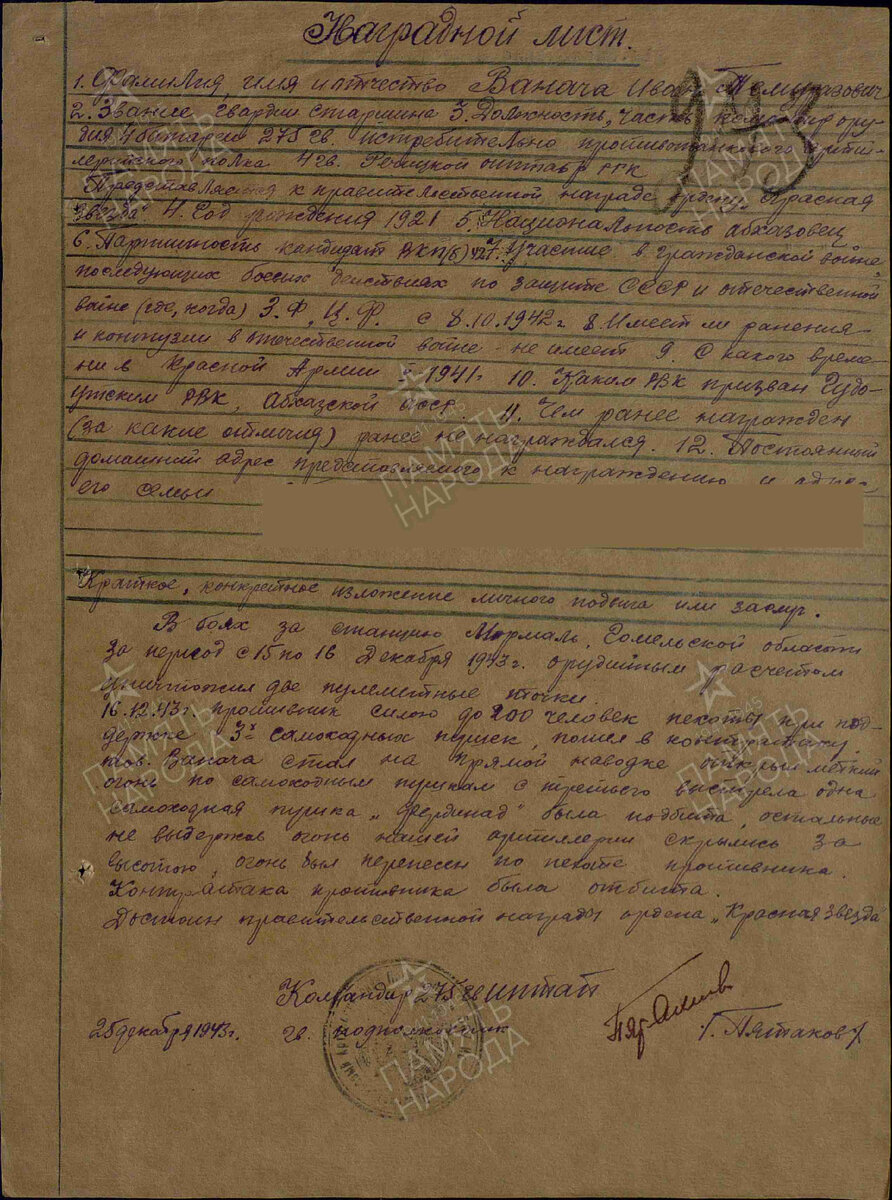 Наградной лист.
1. Фамилия, имя и отчество Ванача Иван Темуразович
2. Звание гвардии старшина 3. Должность, часть командир ору-
дия 4 батареи 275 гв. истребительно противотанкового арти-
лерийского полка 4 гв. Речицкой оиптабр РГК
Представляется к правительственной награде ордену „Красная
звезда" 4. Год рождения 1921 5. Национальность абхазовец
6. Партийность кандидат ВКП(б) 7. Участие в гражданской войне,
последующих боевых действиях по защите СССР и отечественной
войне (где, когда) З.Ф, Ц.Ф. с 8.10.1942 г 8. Имеет ли ранения
и контузии в отечественной войне - не имеет 9. С какого време-
ни в Красной Армии с 1941 г 10. Каким РВК призван Гудо-
утским РВК, Абхазской асср. 11. Чем ранее награжден
(за какие отличия) ранее не награждался. 12. Постоянный
домашний адрес представляемого к награждению и адрес
его семьи
Краткое, конкретное изложение личного подвига или заслуг.
В боях за станцию Мормаль, Гомельской области
за период с 15 по 16 Декабря 1943 г. орудийным расчетом
уничтожил две пулеметные точки.
16.12.43 г. противник силою до 200 человек пехоты при под-
держке 3х самоходных пушек, пошел в контратаку.
тов. Ванача стал на прямой наводке открыл меткий
огонь по самоходным пушкам с третьего выстрела одна
самоходная пушка „Фердинад" была подбита, остальные
не выдержав огонь нашей артиллерии скрылись за
высотою, огонь был перенесен по пехоте противника.
Контратака противника была отбита.
Достоин правительственной награды ордена „Красная звезда"
Командир 275 гв иптап
25 декабря 1943 г. гв. подполковник /. Пятаков /
293
ПАМЯТЬ НАРОДА
ПАМЯТЬ НАРОДА
ПАМЯТЬ НАРОДА
ПАМЯТЬ НАРОДА
ПАМЯТЬ НАРОДА
ПАМЯТЬ НАРОДА